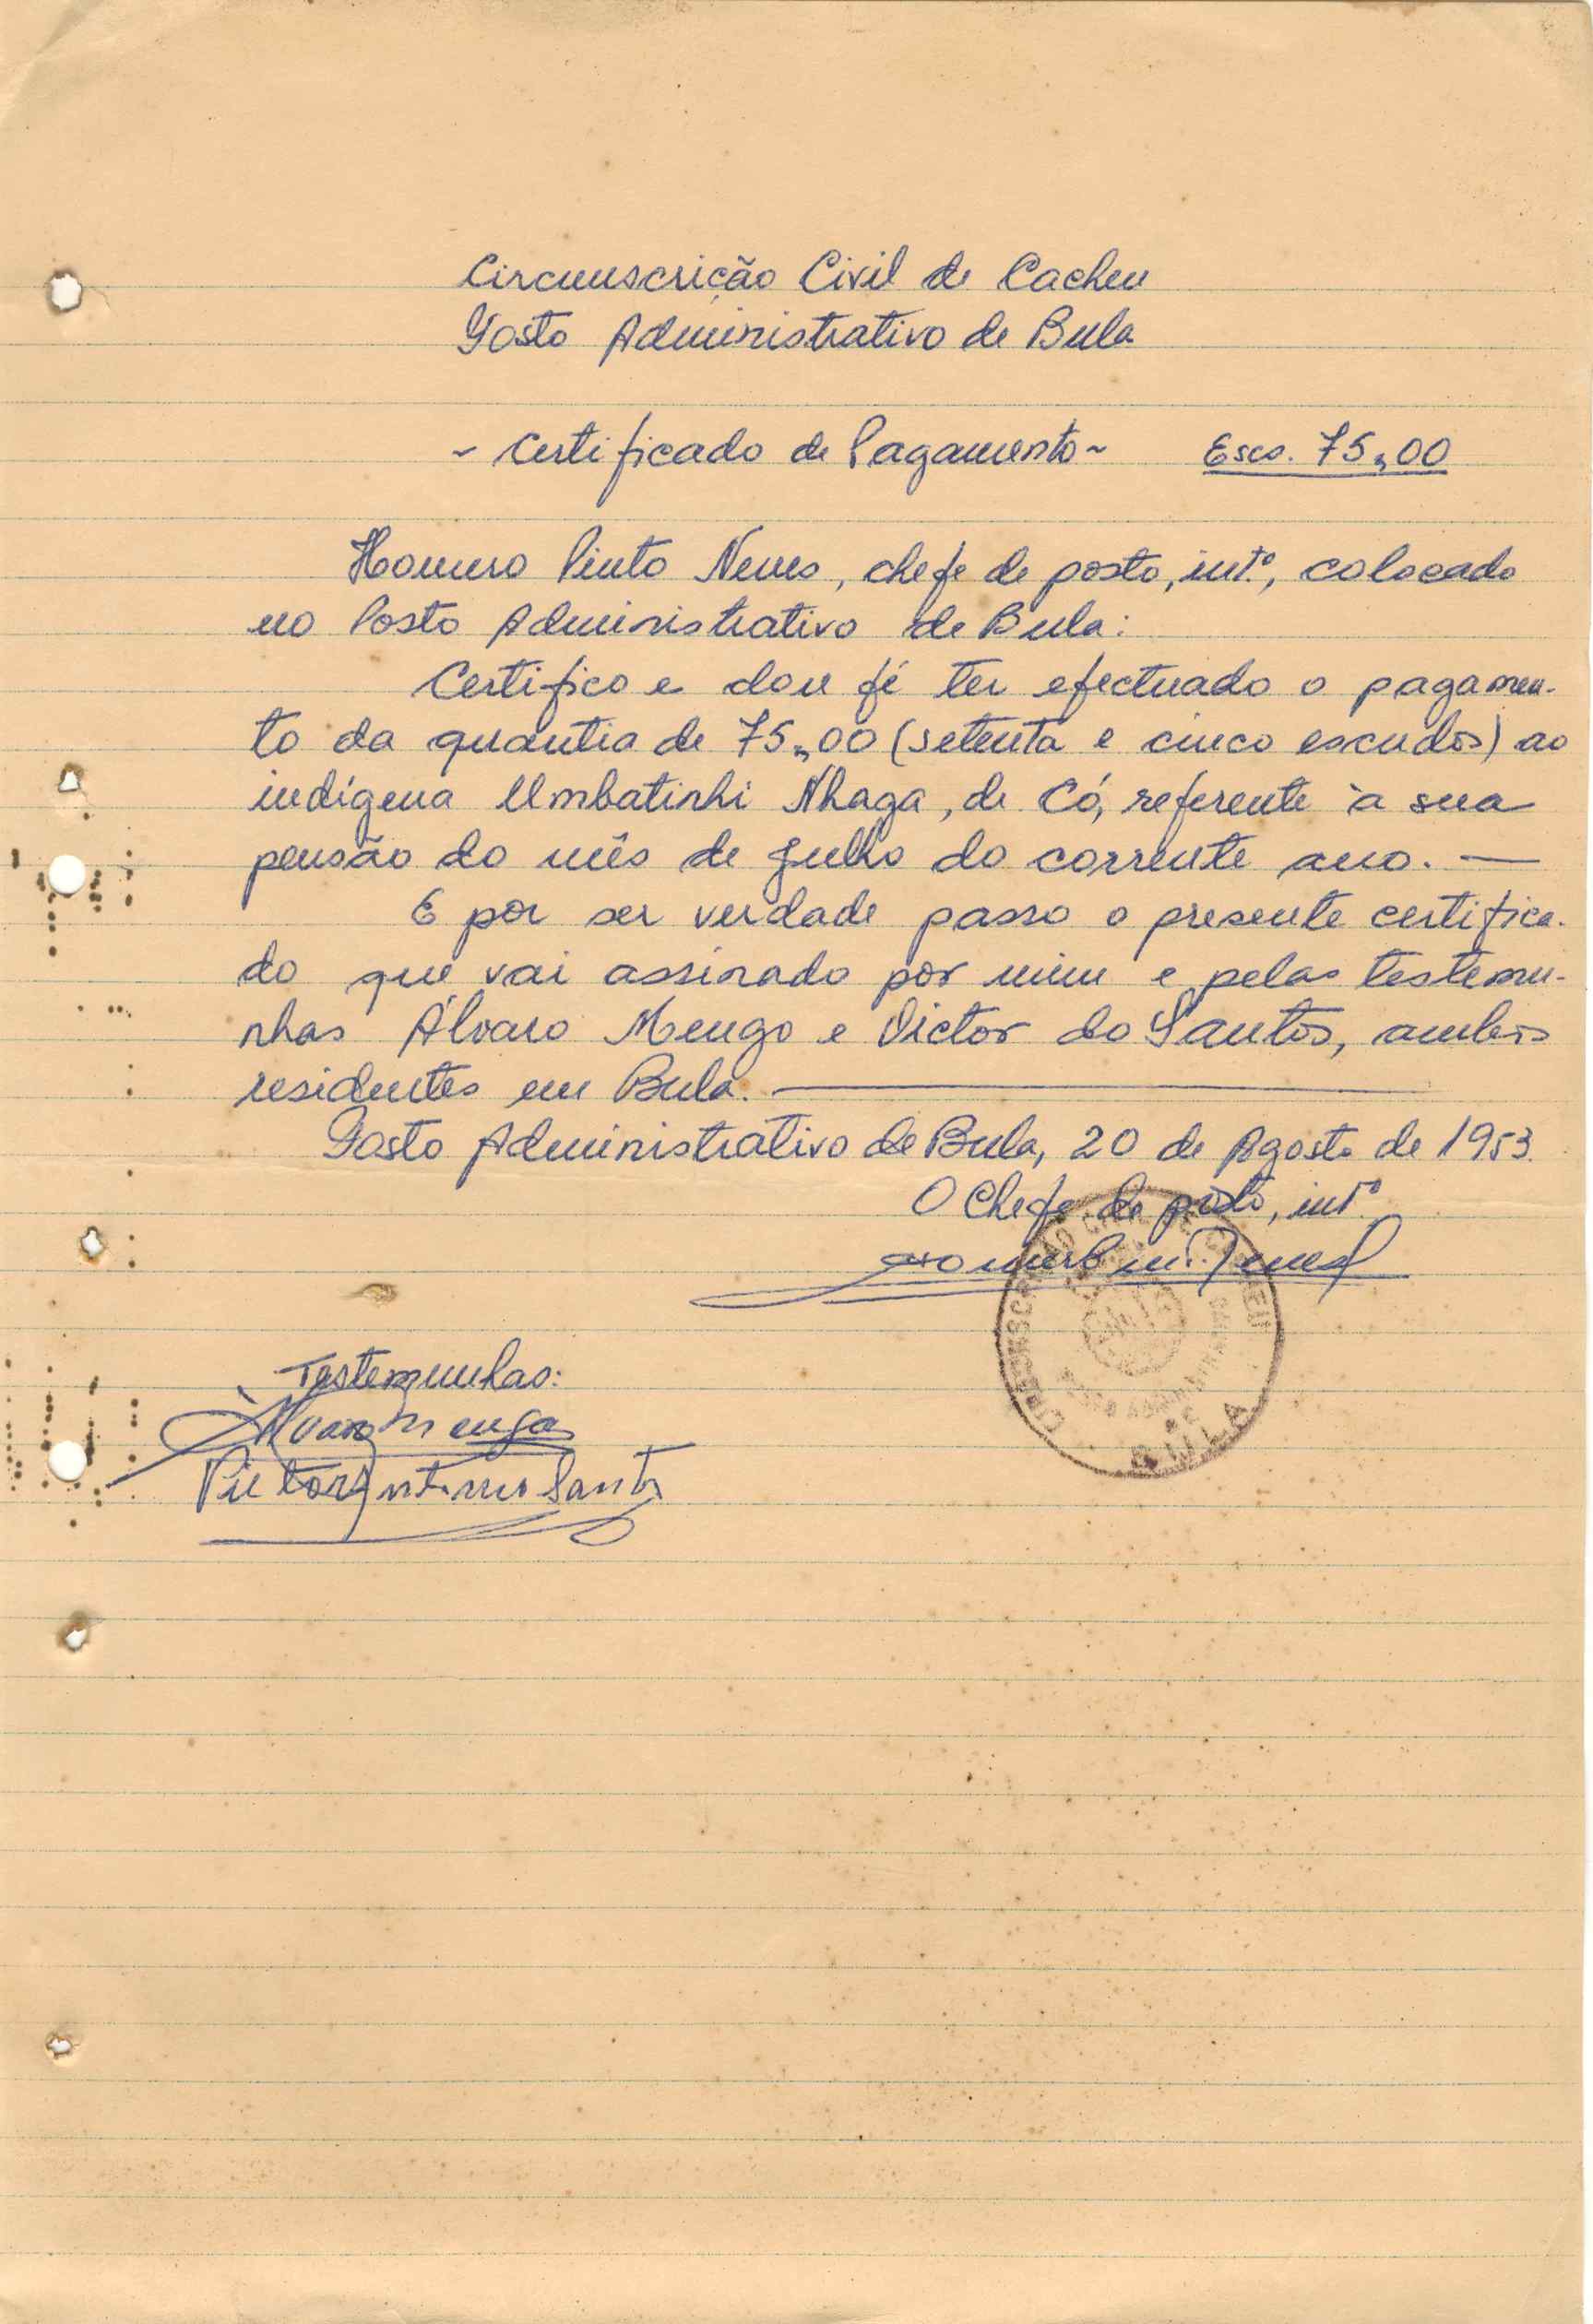 Circunscrição Civil de Cacheu
Posto Administrativo de Bula
~ Certificado de Pagamento ~ Escs. 75,00
Homero Pinto Neves, chefe de posto, int.º, colocado
no Posto Administrativo de Bula:
Certifico e dou fé ter efectuado o pagamen-
to da quantia de 75,00 (setenta e cinco escudos) ao
indígena Umbatinhi Nhaga, de Có, referente à sua
pensão do mês de Julho do corrente ano. —
E por ser verdade passo o presente certifica-
do que vai assinado por mim e pelas testemu-
nhas Álvaro Mengo e Victor do Santos, ambos
residentes em Bula. —
Posto Administrativo de Bula, 20 de Agosto de 1953.
O Chefe de posto, int.º
CIRCUNSCRIÇÃO CIVIL DE CACHEU
BULA
Testemunhas:
Álvaro Mengo
Victor Antonio Santos